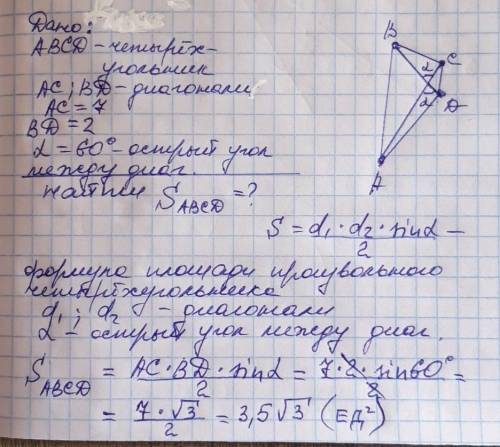 Дано:
ABCD – четырёх-
угольник
AC; BD – диагонали
AC = 7
BD = 2
α = 60° – острый угол
между диаг.
найти S_ABCD = ?
B
C
D
A
α
α
S = d₁ · d₂ · sinα / 2 –
формула площади произвольного
четырёхугольника
d₁ ; d₂ – диагонали
α – острый угол между диаг.
S_ABCD = AC · BD · sinα / 2 = 7 · 2 · sin60° / 2 =
= 7 · √3 / 2 = 3,5 √3 (ЕД²)